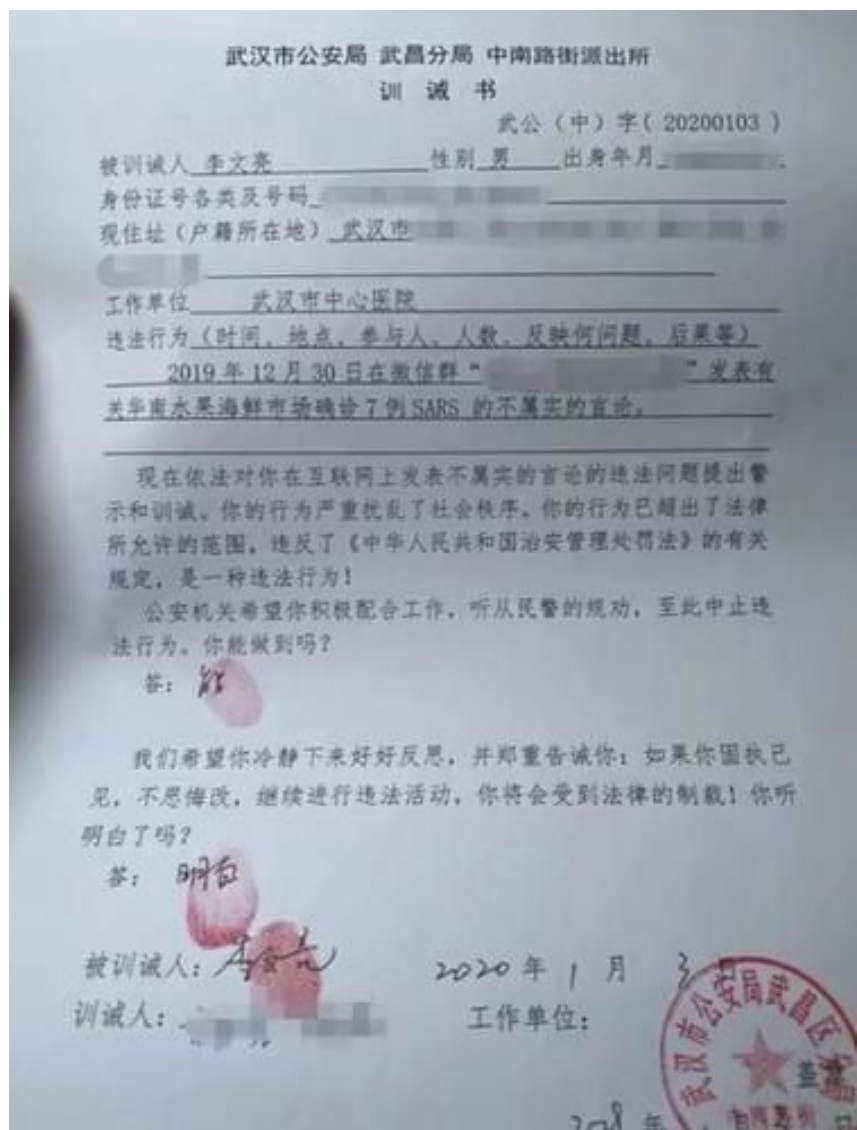 武汉市公安局 武昌分局 中南路街派出所
训 诫 书
武公（中）字( 20200103 )
被训诫人 李文亮 性别 男 出身年月
身份证号各类及号码
现住址（户籍所在地） 武汉市
工作单位 武汉市中心医院
违法行为（时间、地点、参与人、人数、反映何问题、后果等）
2019年12月30日在微信群“ ”发表有
关华南水果海鲜市场确诊7例SARS 的不属实的言论。
现在依法对你在互联网上发表不属实的言论的违法问题提出警
示和训诫。你的行为严重扰乱了社会秩序。你的行为已超出了法律
所允许的范围，违反了《中华人民共和国治安管理处罚法》的有关
规定，是一种违法行为！
公安机关希望你积极配合工作，听从民警的规劝，至此中止违
法行为。你能做到吗？
答： 能
我们希望你冷静下来好好反思，并郑重告诫你：如果你固执己
见，不思悔改，继续进行违法活动，你将会受到法律的制裁！你听
明白了吗？
答： 明白
被训诫人：李文亮 2020 年 1 月 3 日
训诫人： 工作单位：
武汉市公安局武昌区
年